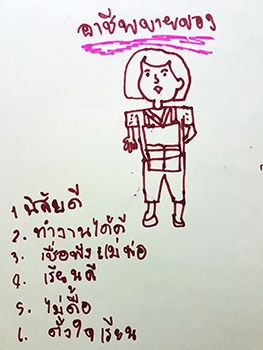 อาชีพขายของ
1 นิสัยดี
2. ทำงานได้ดี
3. เชื่อฟังแม่พ่อ
4. เรียนดี
5. ไม่ดื้อ
6. ตั้งใจเรียน